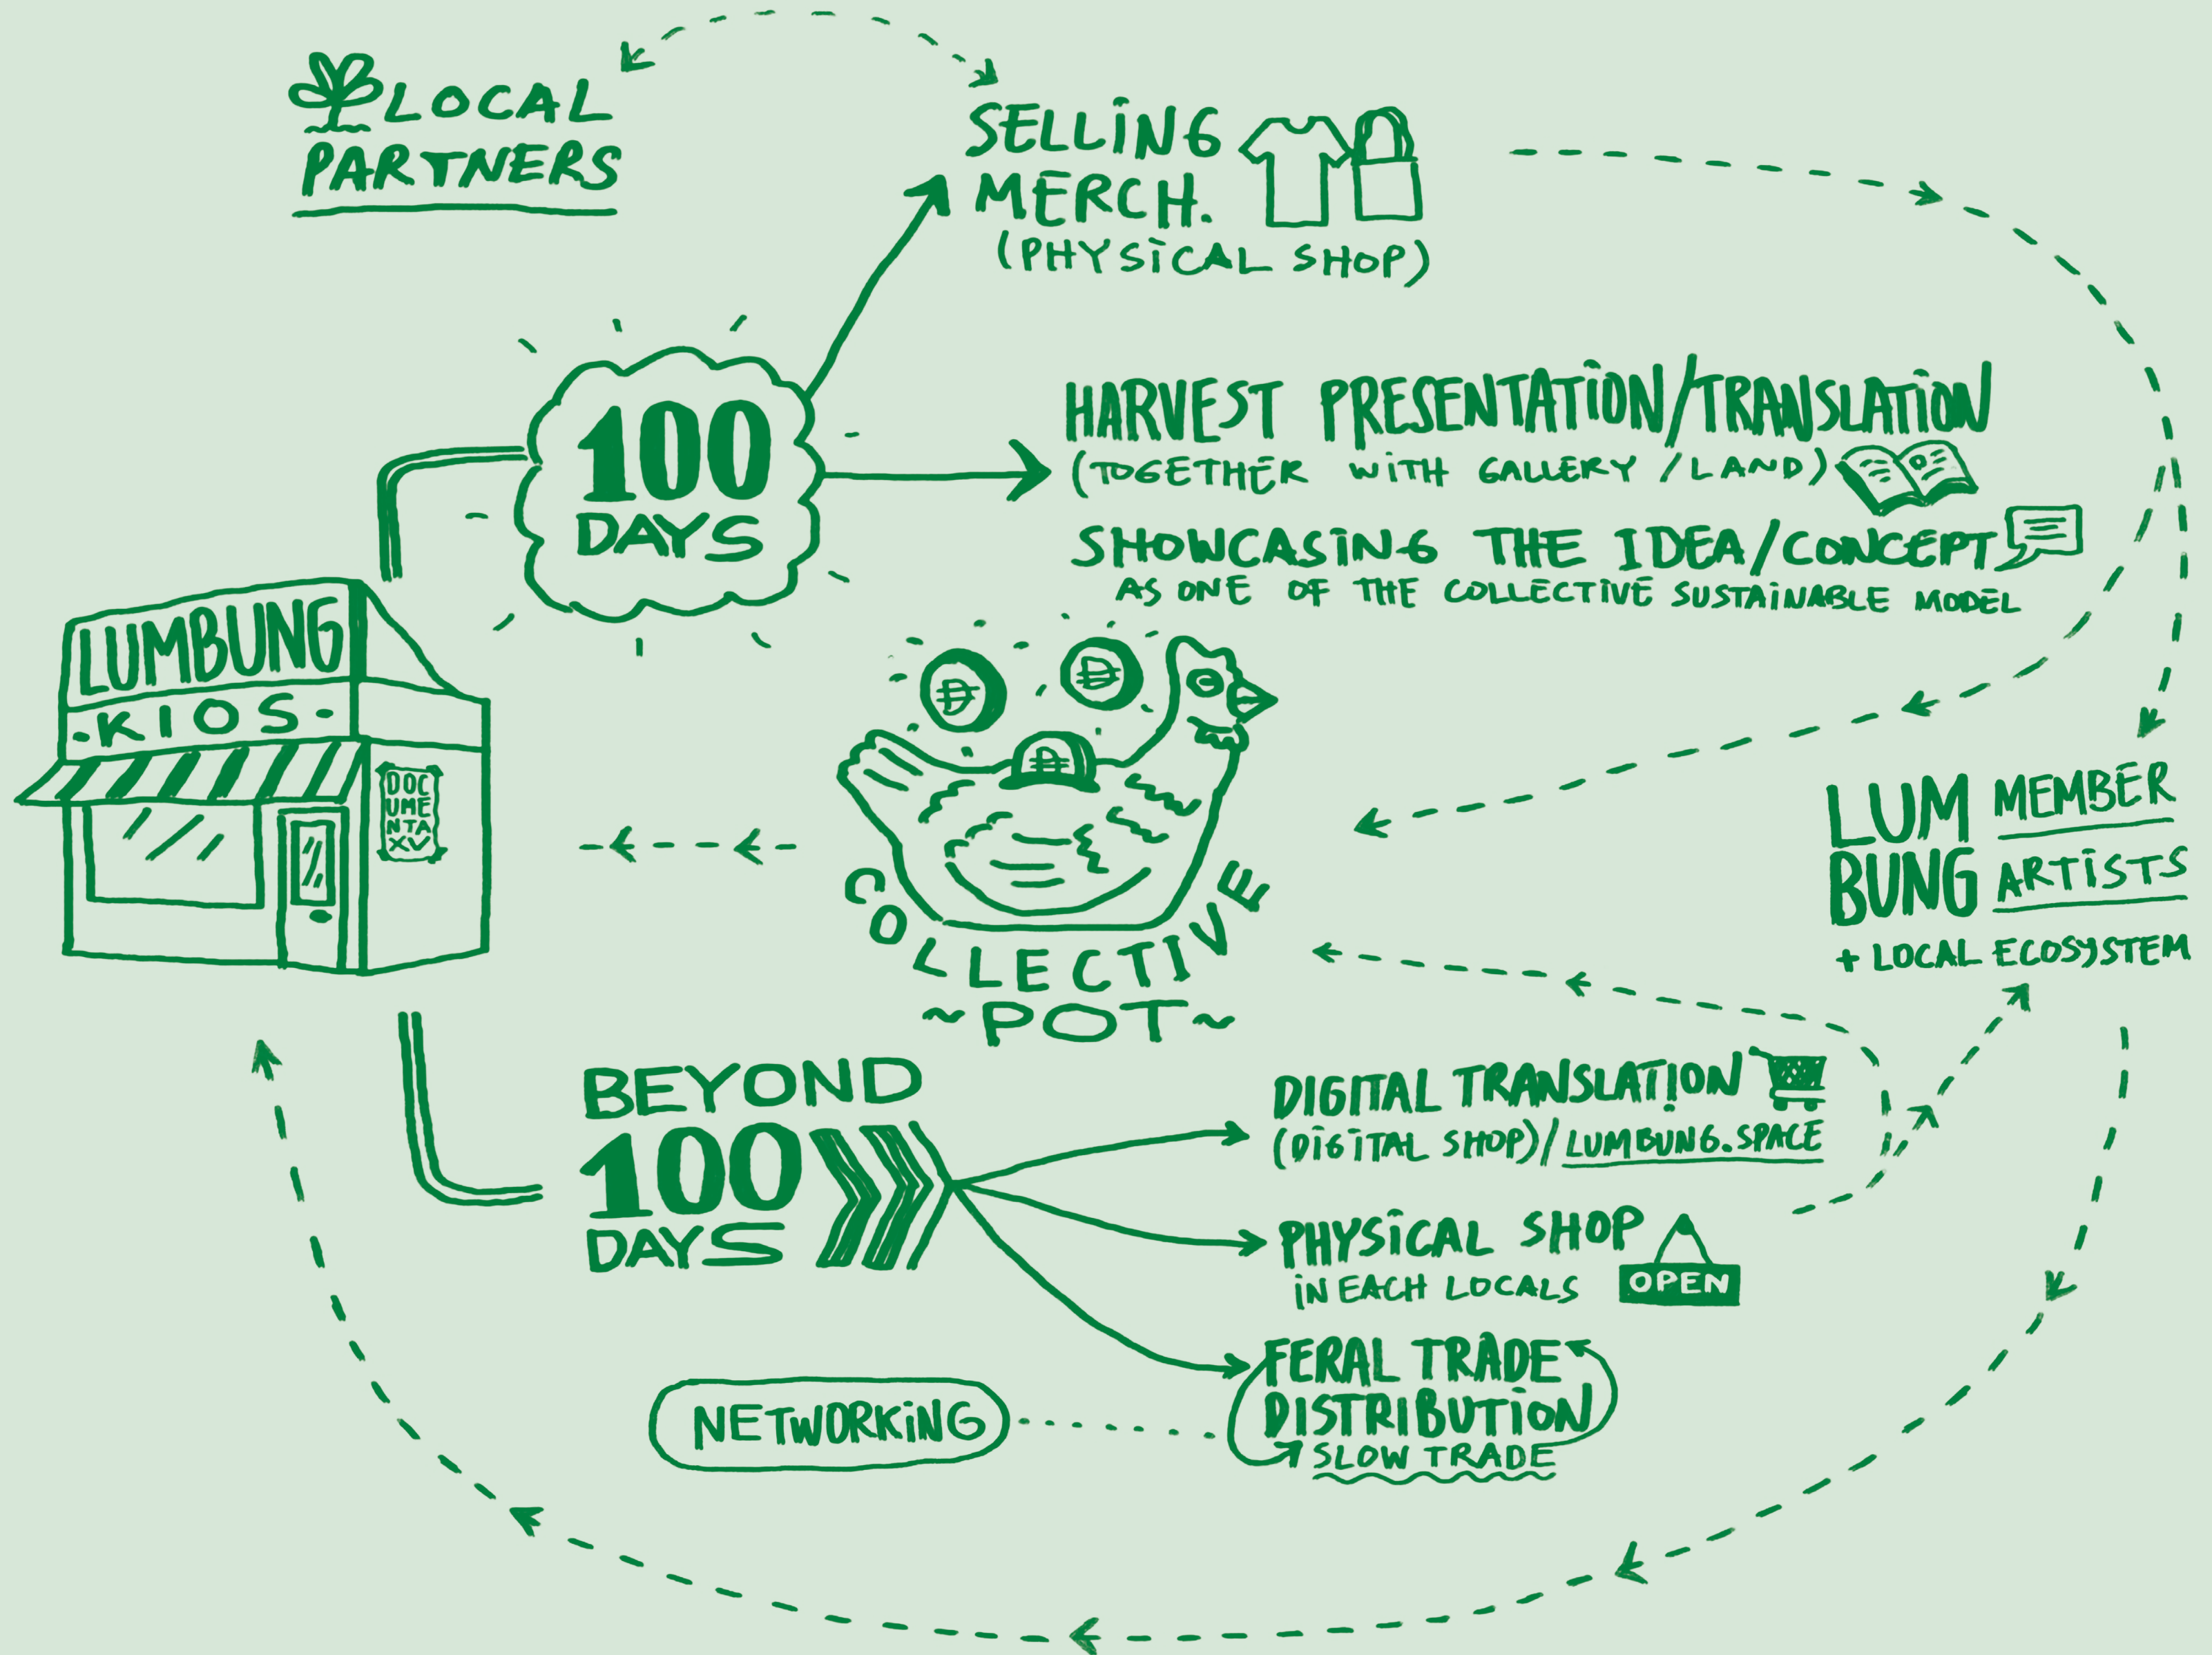 LOCAL
PARTNERS
SELLING
MERCH.
(PHYSICAL SHOP)
100
DAYS
HARVEST PRESENTATION/TRANSLATION
(TOGETHER WITH GALLERY / LAND)
SHOWCASING THE IDEA/CONCEPT
AS ONE OF THE COLLECTIVE SUSTAINABLE MODEL
LUMBUNG
-KIOS-
DOC
UME
NTA
XV
COLLECTIVE
~POT~
LUM
BUNG
MEMBER
ARTISTS
+ LOCAL ECOSYSTEM
BEYOND
100
DAYS
DIGITAL TRANSLATION
(DIGITAL SHOP)/LUMBUNG.SPACE
PHYSICAL SHOP
IN EACH LOCALS
OPEN
FERAL TRADE
DISTRIBUTION
SLOW TRADE
NETWORKING